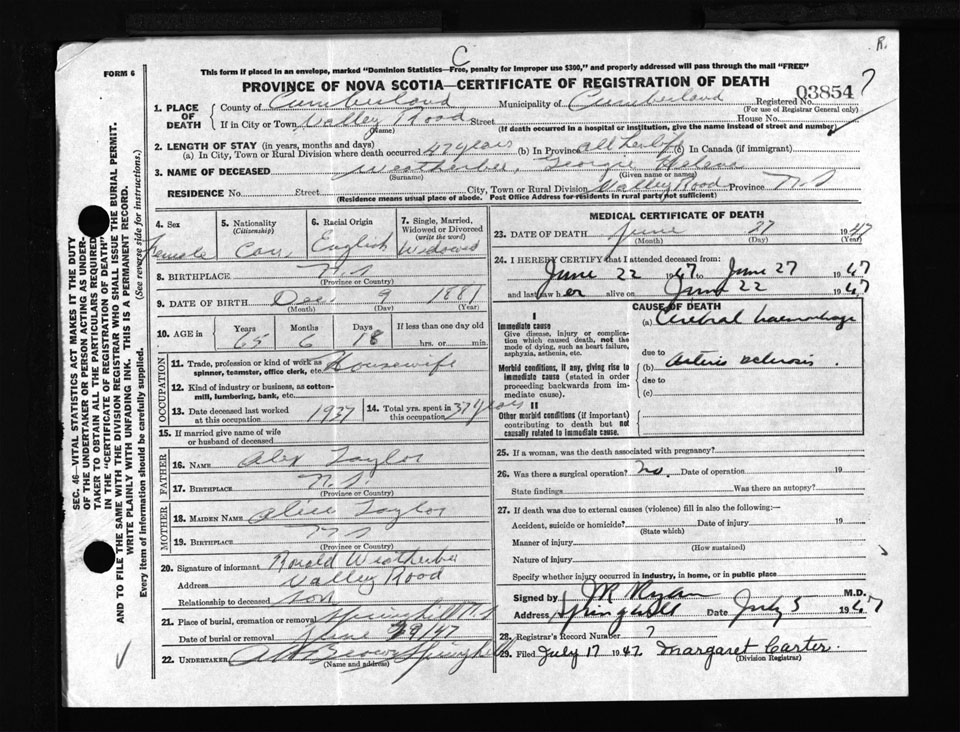 C
R.
FORM 6
This form if placed in an envelope, marked "Dominion Statistics—Free, penalty for improper use $300," and properly addressed will pass through the mail "FREE"
PROVINCE OF NOVA SCOTIA—CERTIFICATE OF REGISTRATION OF DEATH
03854 ?
1. PLACE OF DEATH County of Cumberland Municipality of Cumberland Registered No.
(For use of Registrar General only)
If in City or Town Valley Road Street House No.
(Name) (If death occurred in a hospital or institution, give the name instead of street and number)
2. LENGTH OF STAY (in years, months and days)
(a) In City, Town or Rural Division where death occurred 47 years (b) In Province all her life (c) In Canada (if immigrant)
3. NAME OF DECEASED Weatherbee, Georgie Helena
(Surname) (Given name or names)
RESIDENCE No. Street City, Town or Rural Division Valley Road Province N.S
(Residence means usual place of abode. Post Office Address for residents in rural parts not sufficient)
4. Sex Female
5. Nationality (Citizenship) Can.
6. Racial Origin English
7. Single, Married, Widowed or Divorced (write the word) Widowed
8. BIRTHPLACE N.S
(Province or Country)
9. DATE OF BIRTH Dec 9 1881
(Month) (Day) (Year)
10. AGE in Years 65 Months 6 Days 18 If less than one day old hrs. or min.
OCCUPATION
11. Trade, profession or kind of work as spinner, teamster, office clerk, etc. Housewife
12. Kind of industry or business, as cotton-mill, lumbering, bank, etc.
13. Date deceased last worked at this occupation 1937
14. Total yrs. spent in this occupation 37 years
15. If married give name of wife or husband of deceased
FATHER
16. NAME Alex Taylor
17. BIRTHPLACE N.S.
(Province or Country)
MOTHER
18. MAIDEN NAME Alice Taylor
19. BIRTHPLACE N S
(Province or Country)
20. Signature of informant Ronald Weatherbee
Address Valley Road
Relationship to deceased son
21. Place of burial, cremation or removal Springhill N.S
Date of burial or removal June 29/47
22. UNDERTAKER Brown Springhill
(Name and address)
MEDICAL CERTIFICATE OF DEATH
23. DATE OF DEATH June 27 1947
(Month) (Day) (Year)
24. I HEREBY CERTIFY that I attended deceased from:
June 22 1947 to June 27 1947
and last saw her alive on June 22 1947
CAUSE OF DEATH
I
Immediate cause
Give disease, injury or complication which caused death, not the mode of dying, such as heart failure, asphyxia, asthenia, etc.
(a) Cerebral haemorrhage
due to
Morbid conditions, if any, giving rise to immediate cause (stated in order proceeding backwards from immediate cause).
(b) Arterio sclerosis.
due to
(c)
II
Other morbid conditions (if important) contributing to death but not causally related to immediate cause.
25. If a woman, was the death associated with pregnancy?
26. Was there a surgical operation? no. Date of operation 19
State findings Was there an autopsy?
27. If death was due to external causes (violence) fill in also the following:—
Accident, suicide or homicide? Date of injury 19
(State which)
Manner of injury
(How sustained)
Nature of injury
Specify whether injury occurred in industry, in home, or in public place
Signed by JR Ryan M.D.
Address Springhill Date July 5 1947
28. Registrar's Record Number ?
29. Filed July 17 1947. Margaret Carter.
(Division Registrar)
SEC. 46—VITAL STATISTICS ACT MAKES IT THE DUTY
OF THE UNDERTAKER OR PERSON ACTING AS UNDER-
TAKER TO OBTAIN ALL THE PARTICULARS REQUIRED
IN THE "CERTIFICATE OF REGISTRATION OF DEATH"
AND TO FILE THE SAME WITH THE DIVISION REGISTRAR WHO SHALL ISSUE THE BURIAL PERMIT.
WRITE PLAINLY WITH UNFADING INK. THIS IS A PERMANENT RECORD.
Every item of information should be carefully supplied. (See reverse side for instructions.)